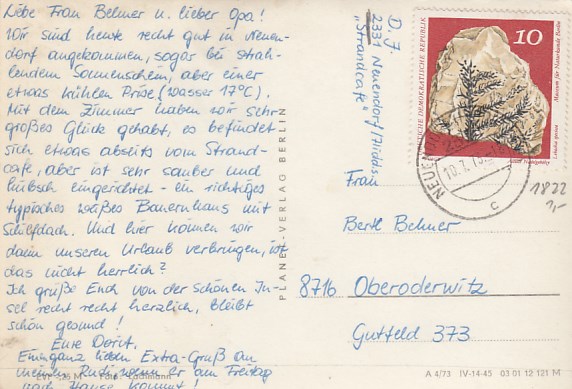 Liebe Frau Belmer u. lieber Opa!
Wir sind heute recht gut in Neuen-
dorf angekommen, sogar bei strah-
lendem Sonnenschein, aber einer
etwas kühlen Prise (Wasser 17°C).
Mit dem Zimmer haben wir sehr
großes Glück gehabt, es befindet
sich etwas abseits vom Strand-
café, aber ist sehr sauber und
hübsch eingerichtet - ein richtiges
typisches weißes Bauernhaus mit
Schilfdach. Und hier können wir
dann unseren Urlaub verbringen, ist
das nicht herrlich?
Ich grüße Euch von der schönen In-
sel recht recht herzlich, bleibt
schön gesund!
Eure Dorit.
Einen ganz lieben Extra-Gruß an
meinen Rudi wenn er am Freitag
nach Hause kommt!
PLANET-VERLAG BERLIN
D. J
2331 Neuendorf/Hidds.
"Strandcafé"
DEUTSCHE DEMOKRATISCHE REPUBLIK
10
Museum für Naturkunde Berlin
10.7.
c
1822
1,-
Frau
Bertl Belmer
8716 Oberoderwitz
Gutfeld 373
A 4/73 IV-14-45 03 01 12 121 M